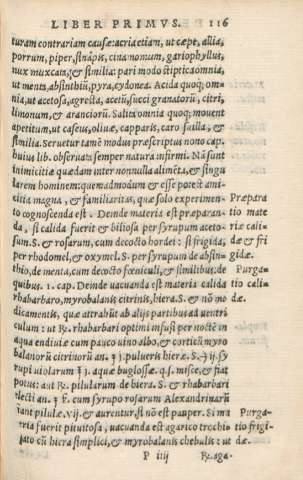 LIBER PRIMVS. 116
turam contrariam causæ: acria etiam, ut cæpe, allia,
porrum, piper, sinápis, cinamomum, gariophyllus,
nux muxcata, & similia: pari modo stiptica omnia,
ut menta, absinthiū, pyra, cydonea. Acida quoq; om-
nia, ut acetosa, agresta, aceiū, succi granatorū, citri,
limonum, & aranciorū. Salita omnia quoq; mouent
apetitum, ut caseus, oliuæ, capparis, caro suilla, &
similia. Seruetur tamē modus præscriptus nono cap.
huius lib. obseruatā semper natura infirmi. Nā sunt
inimicitiæ quædam inter nonnulla alimēta, & singu
larem hominem: quemadmodum & esse potest ami-
citia magna, & familiaritas, quæ solo experimen-
to cognoscenda est. Deinde materia est præparan-
da, si calida fuerit & biliosa per syrupum aceto-
sum. S. & rosarum, cum decocto hordei: si frigida,
per rhodomel, & oxymel. S. per syrupum de absin-
thio, de menta, cum decocto fœniculi, & similibus, de
quibus. 1. cap. Deinde uacuanda est materia calida
rhabarbaro, myrobalanis citrinis, hiera. S. & nō me
dicamentis, quæ attrahūt ab alijs partibus ad uentri
culum: ut ℞. rhabarbari optimi infusi per noctē in
aqua endiuiæ cum pauco uino albo, & corticū myro
balanorū citrinorū an. ʒ j. pulueris hieræ. S. ℈ ij. sy
rupi uiolarum ℥ j. aquæ buglossæ. q.s. misce, & fiat
potus: aut ℞. pilularum de hiera. S. & rhabarbari
electi an. ʒ f. cum syrupo rosarum Alexandrinarū
fiant pilulæ. vij. & aurentur, si nō est pauper. Si ma
teria fuerit pituitosa, uacuanda est agarico trochi-
scato cū hiera simplici, & myrobalanis chebulis: ut
P iiij ℞. aga-
Præpara
tio mate
riæ cali-
dæ & fri
gidæ.
Purga-
tio cali-
dæ.
Purga-
tio frigi-
dæ.